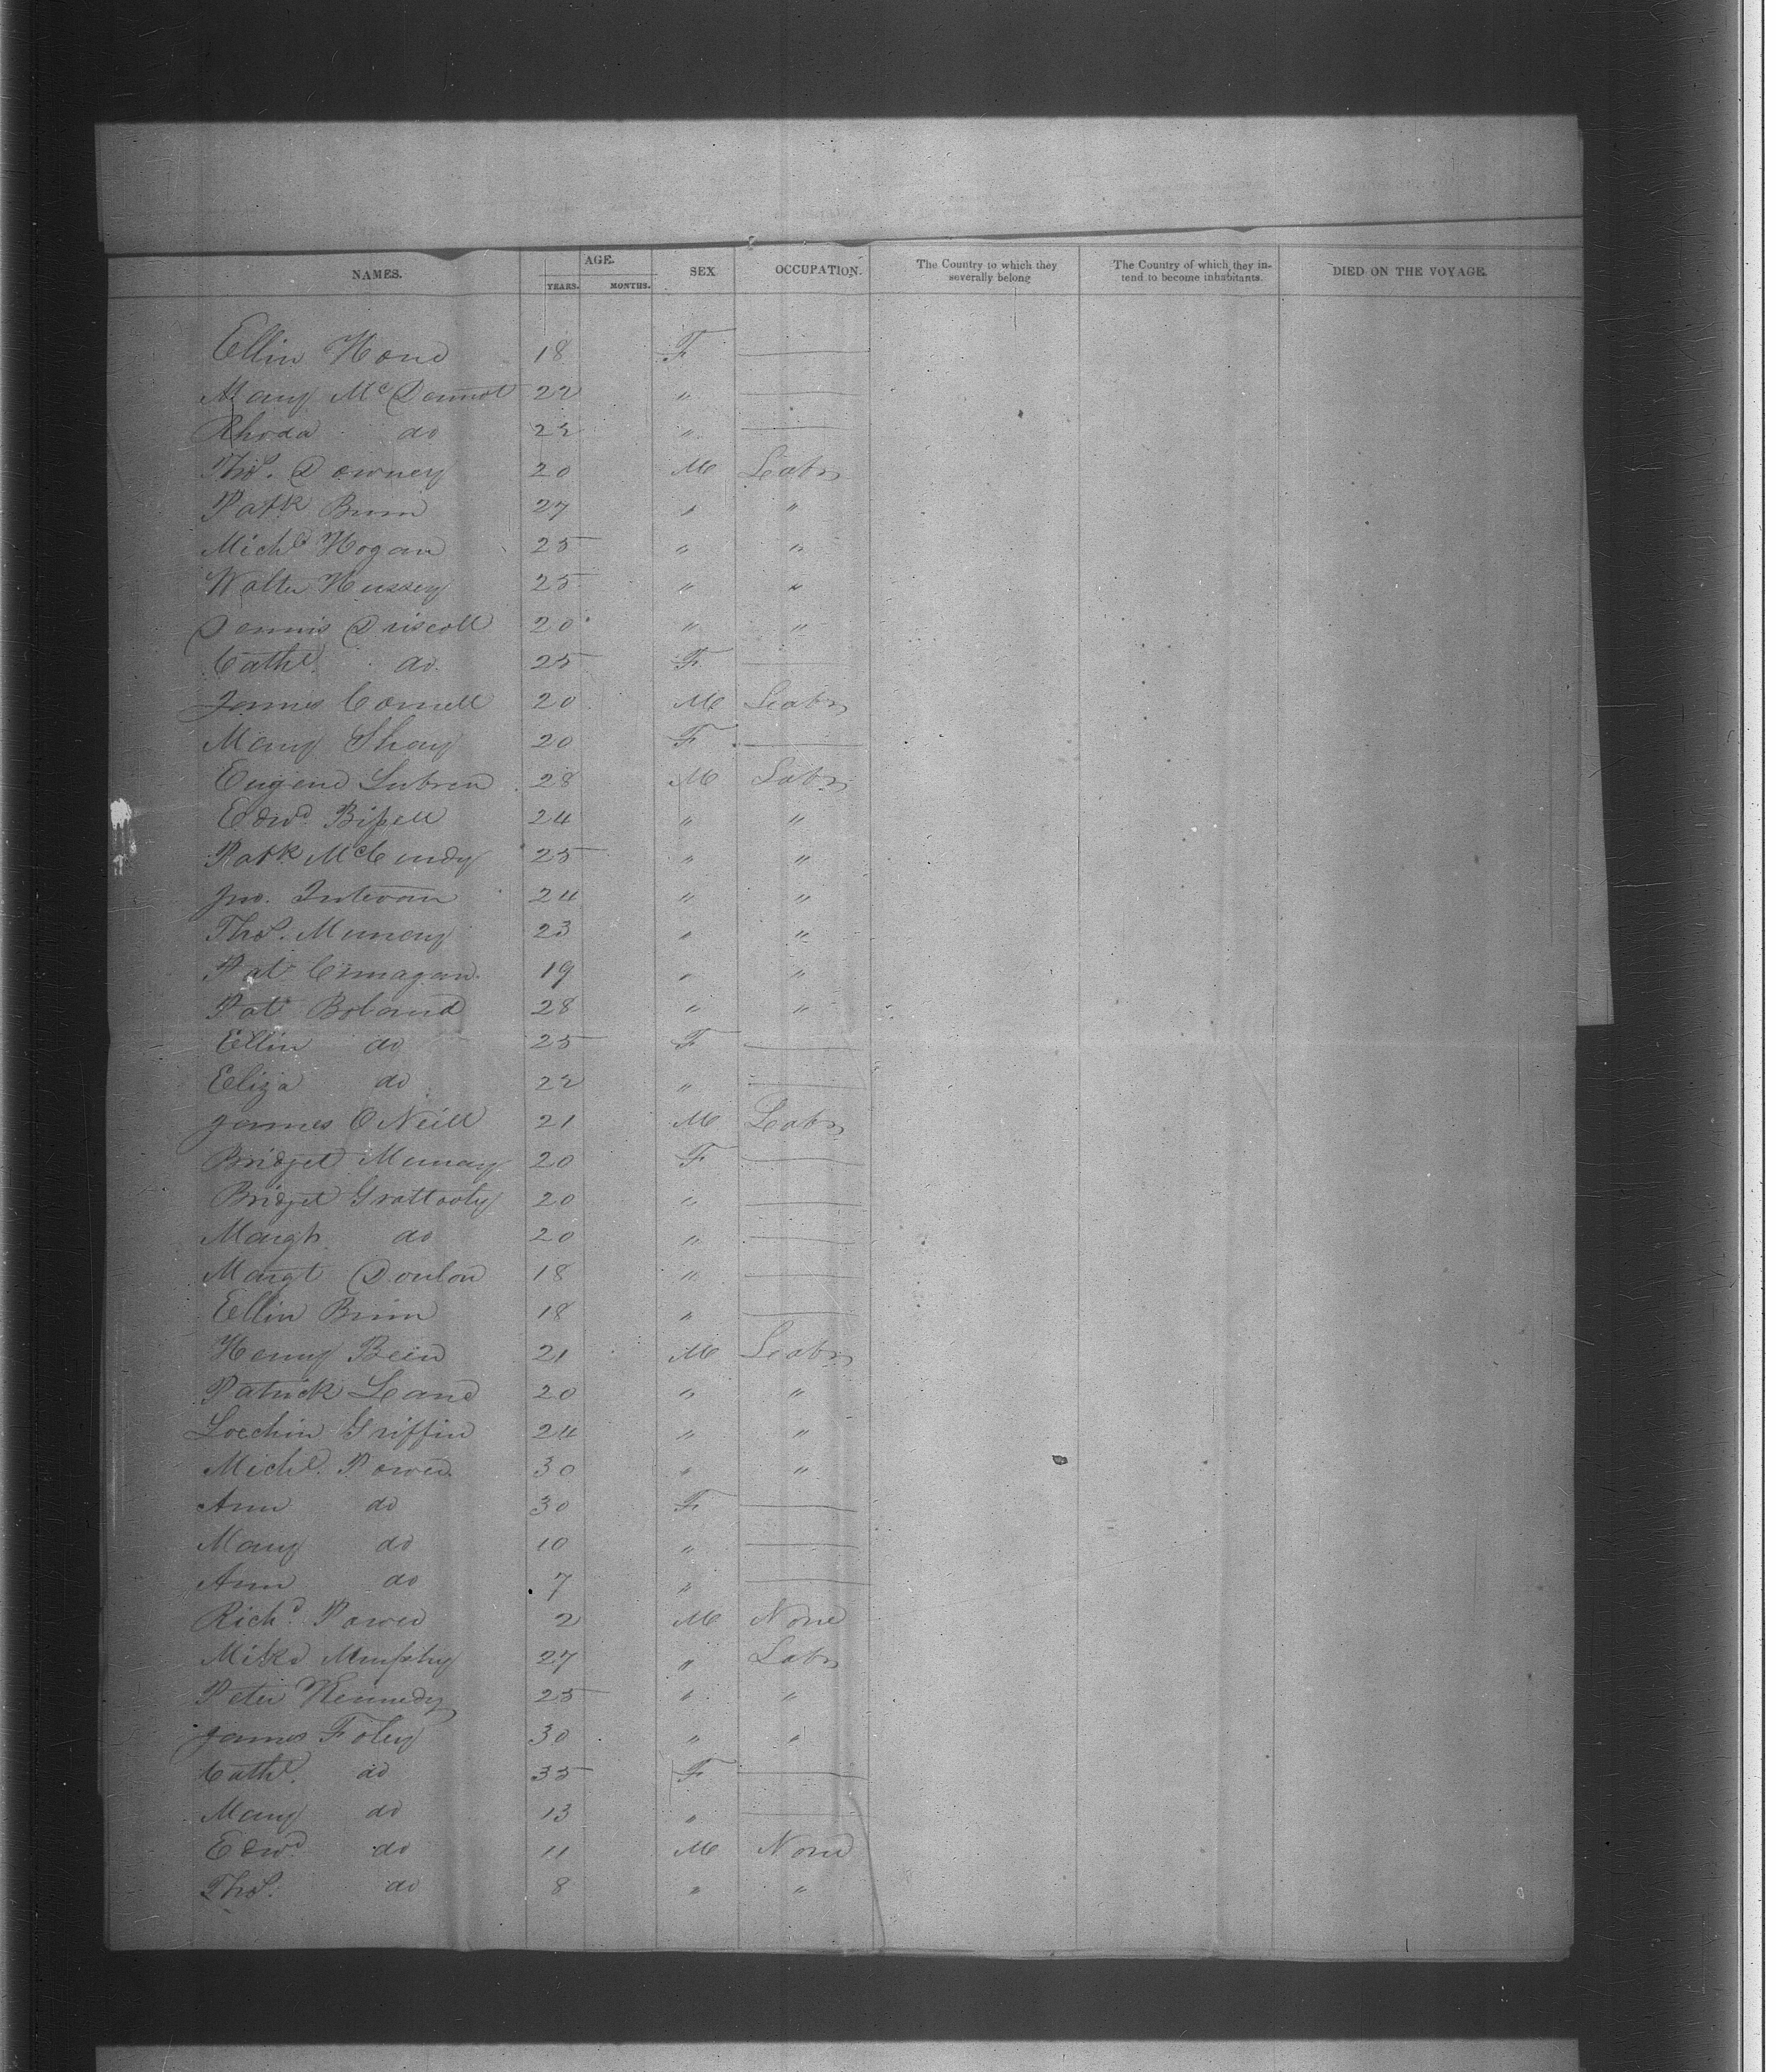 NAMES. AGE. YEARS. MONTHS. SEX OCCUPATION. The Country to which they severally belong The Country of which they intend to become inhabitants. DIED ON THE VOYAGE.
Ellin Hone 18 F —
Mary McDermot 22 " —
Rhoda do 22 " —
Thos. Downey 20 M Labr
Patk 27 " "
Michl Hogan 25 " "
Walter Hussey 25 " "
Dennis Driscoll 20 " "
Cathe do 25 F —
James Connell 20 M Labr
Mary Shay 20 F —
Eugene 28 M Labr
Edwd Bissell 24 " "
Patk 25 " "
Jno. 24 " "
Thos. Murray 23 " "
Pat 19 " "
Pat Boland 28 " "
Ellin do 25 F —
Eliza do 22 " —
James O Neill 21 M Labr
Bridget Murray 20 F —
Bridget 20 " —
Margt do 20 " —
Margt 18 " —
Ellin 18 " —
Henry 21 M Labr
Patrick Lane 20 " "
Griffin 24 " "
Michl. Power 30 " "
Ann do 30 F —
Mary do 10 " —
Ann do 7 " —
Richd Power 2 M None
Mike Murphy 27 " Labr
Peter Kennedy 25 " "
James Foley 30 " "
Cathe. do 35 F —
Mary do 13 " —
Edwd do 11 M None
Thos. do 8 " "